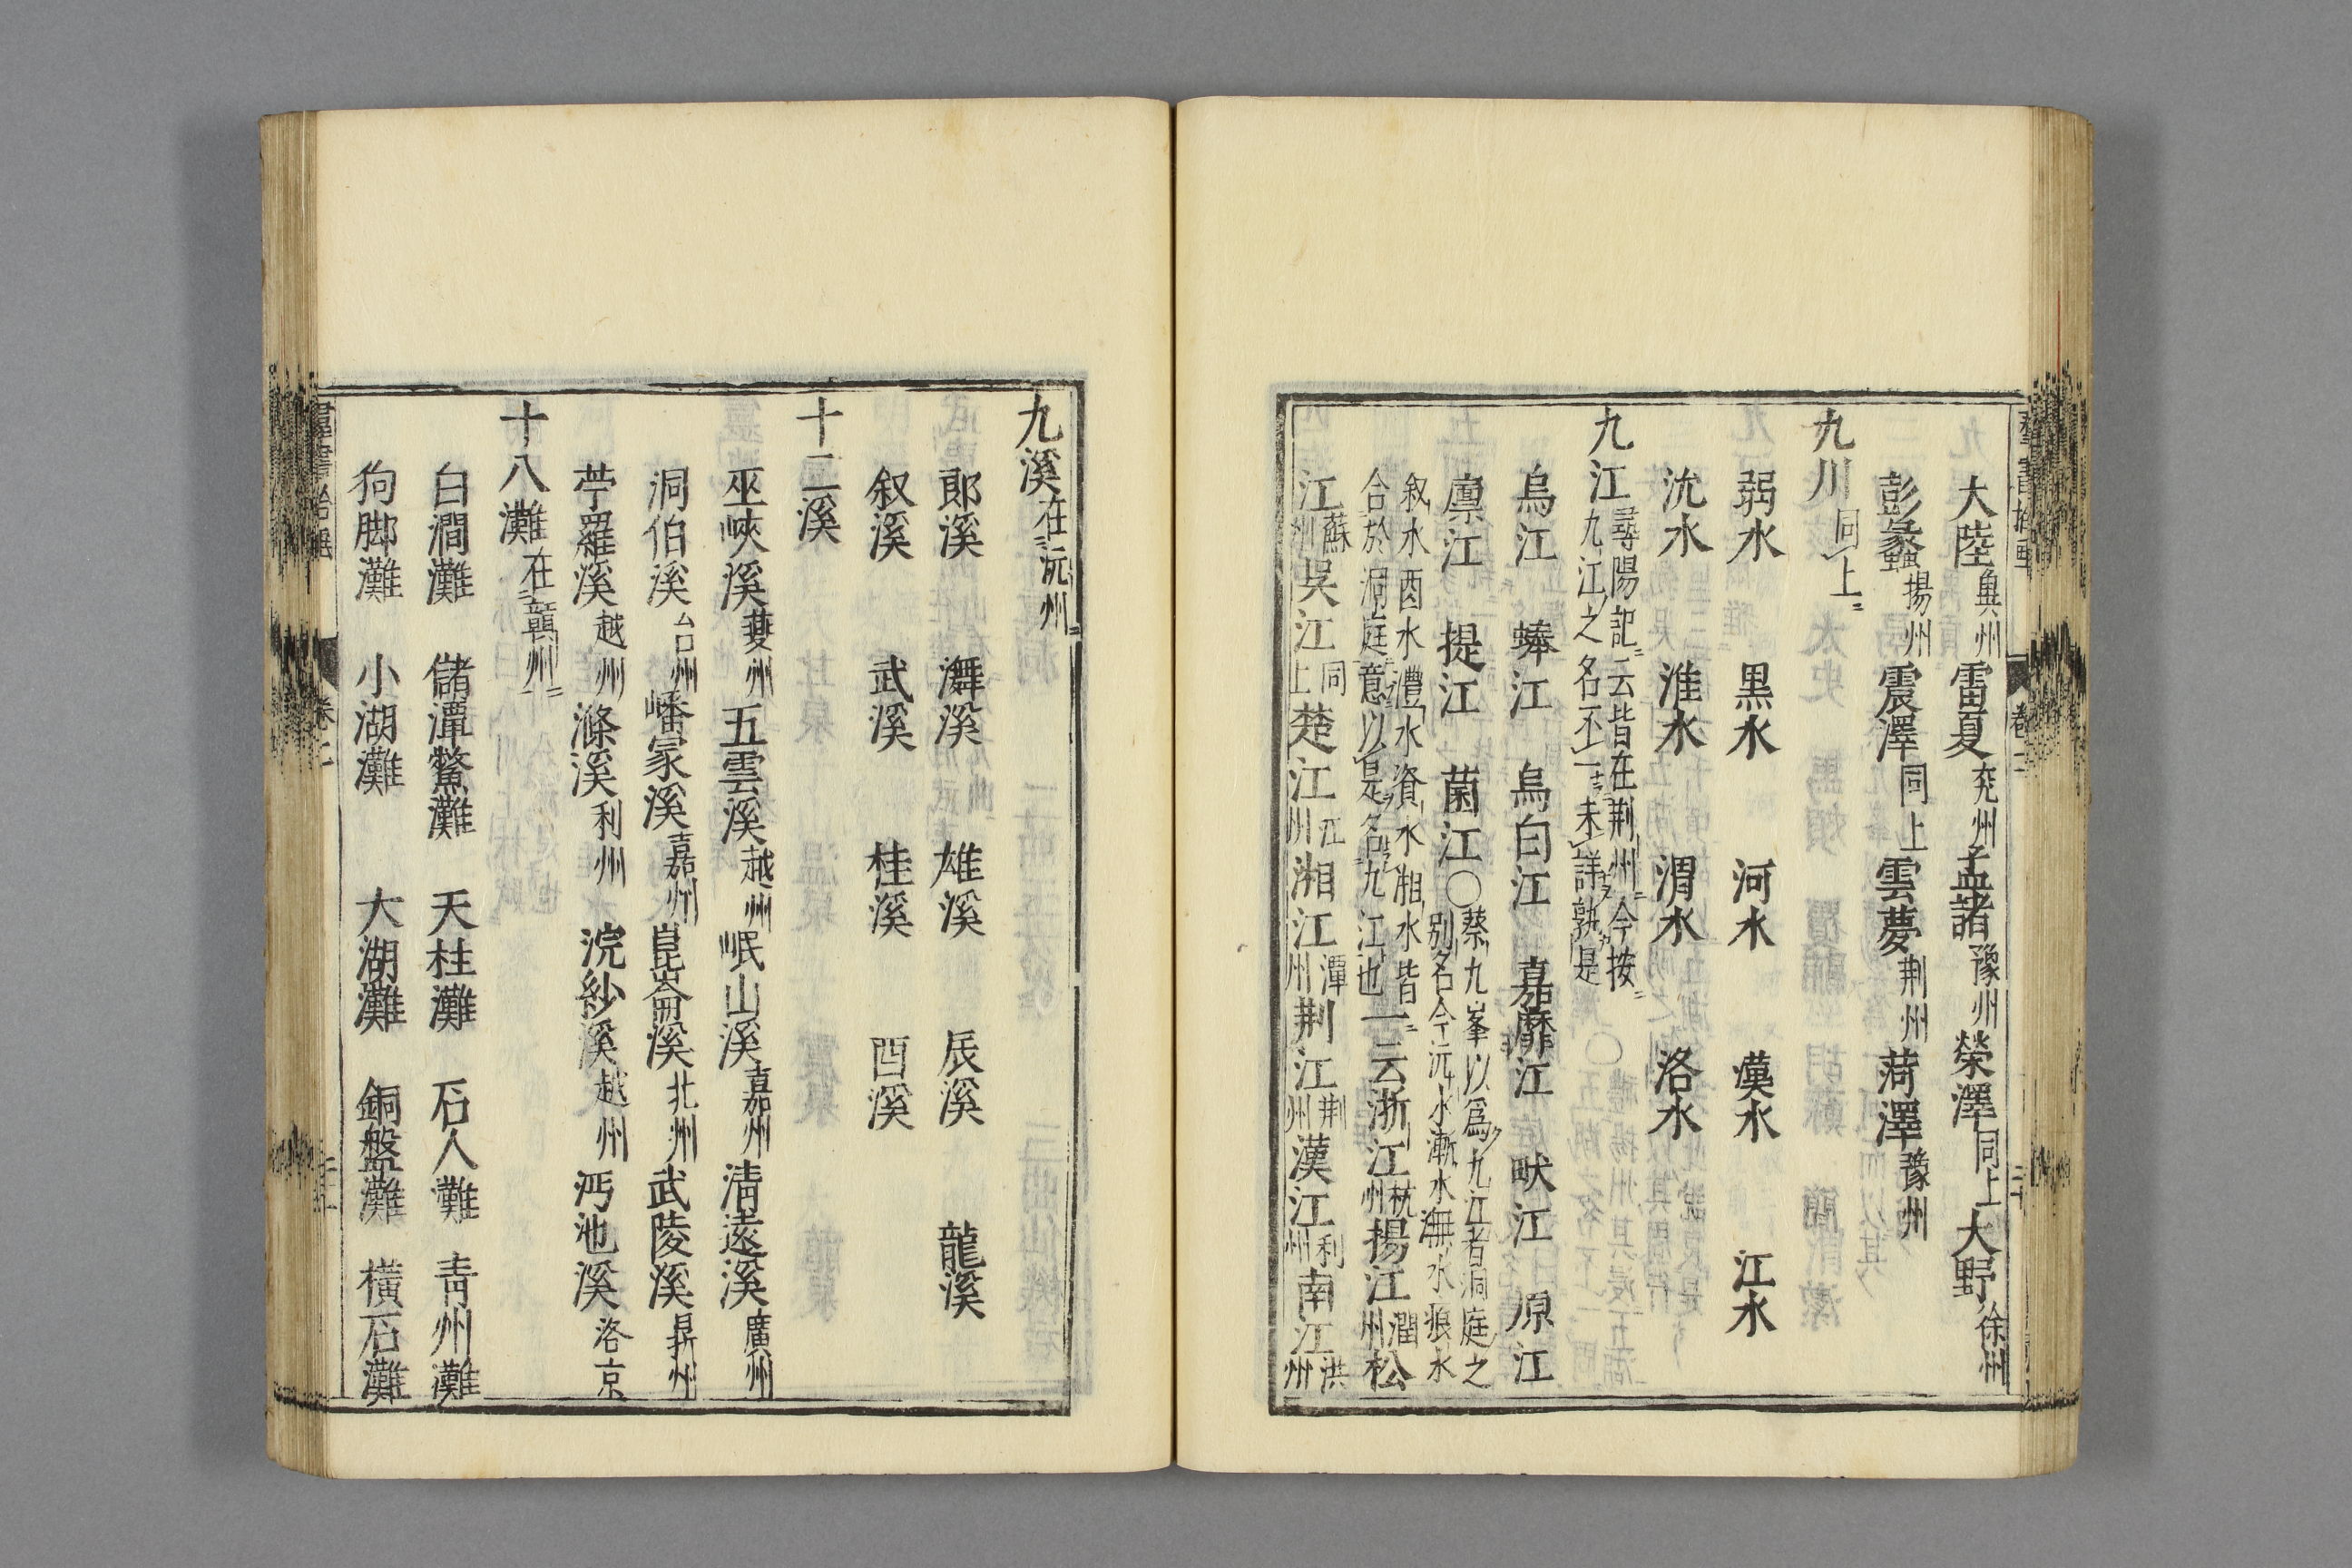 大陸冀州雷夏兖州孟諸豫州榮澤同上大野徐州
彭蠡揚州震澤同上雲夢荆州菏澤豫州
九川同上
弱水 黒水 河水 漢水 江水
沇水 淮水 渭水 洛水
九江尋陽記云皆在荆州今按九江之名不一未詳孰是
烏江 蜯江 烏白江 嘉靡江 畎江 原江
廪江 提江 菌江〇蔡九峯以爲九江者洞庭之别名今沅水漸水潕水㴆水
叙水酉水澧水資水湘水皆合於洞庭意以是名九江也一云浙江杭州揚江潤州松
江蘇州吳江同上楚江江州湘江潭州荆江荆州漢江利州南江洪州
九溪在沅州
郎溪 潕溪 雄溪 辰溪 龍溪
叙溪 武溪 桂溪 酉溪
十二溪
巫峽溪夔州五雲溪越州岷山溪嘉州清遠溪廣州
洞伯溪台州嶓冡溪嘉州崑崙溪北州武陵溪鼎州
苧羅溪越州滌溪利州浣紗溪越州沔池溪洛京
十八灘在贛州
白澗灘 儲潭鱉灘 天柱灘 石人灘 青州灘
狗脚灘 小湖灘 大湖灘 銅盤灘 橫石灘
卷二